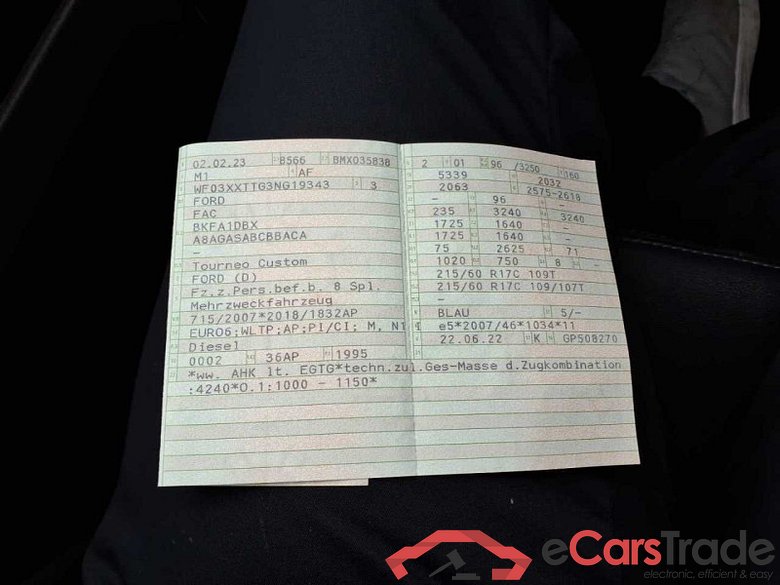 02.02.23 8566 BMX035838
M1 AF
WF03XXTTG3NG19343 3
FORD
FAC
BKFA1DBX
A8AGASABCBBACA
-
Tourneo Custom
FORD (D)
Fz.z.Pers.bef.b. 8 Spl.
Mehrzweckfahrzeug
715/2007*2018/1832AP
EURO6;WLTP;AP;PI/CI; M, N1 
Diesel
0002 36AP 1995
*ww. AHK lt. EGTG*techn.zul.Ges-Masse d.Zugkombination
:4240*O.1:1000 - 1150*
2 01 96 /3250 160
5339 2032
2063 2575-2618
- 96 -
235 3240 3240
1725 1640 -
1725 1640 -
75 2625 71
1020 750 8 -
215/60 R17C 109T
215/60 R17C 109/107T
-
BLAU 5/-
e5*2007/46*1034*11
22.06.22 K GP508270
eCarsTrade
electronic, efficient & easy